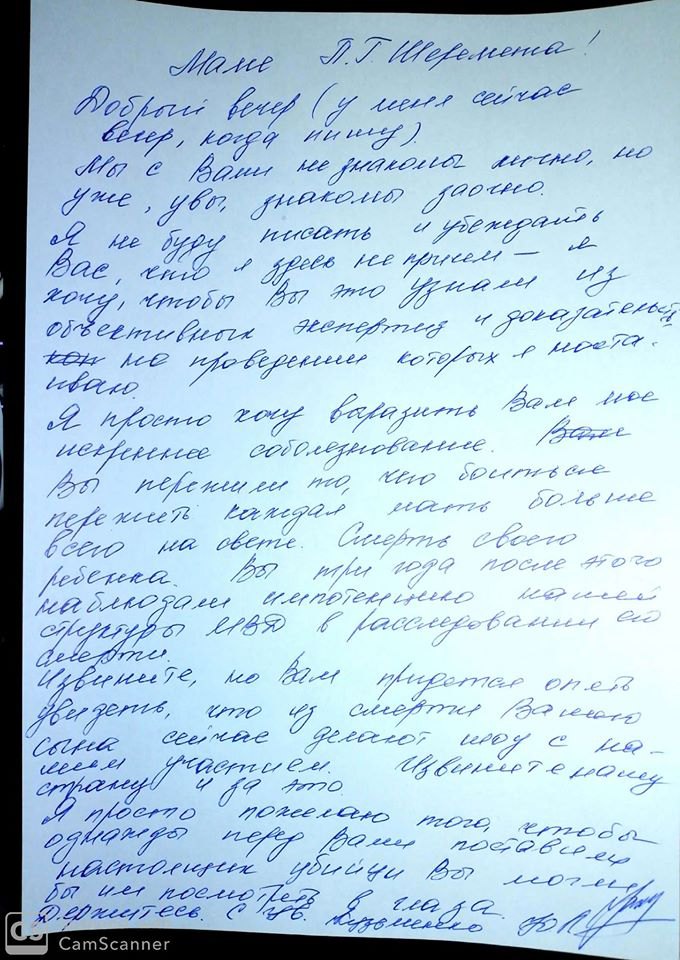 Маме П.Г. Шеремета!
Добрый вечер (у меня сейчас
вечер, когда пишу).
Мы с Вами не знакомы лично, но
уже, увы, знакомы заочно.
Я не буду писать и убеждать
Вас, что я здесь не причем – я
хочу, чтобы Вы это узнали из
объективных экспертиз и доказательств,
на проведении которых я наста-
иваю.
Я просто хочу выразить Вам мое
искреннее соболезнование. Вам
Вы пережили то, чего боиться
пережить каждая мать больше
всего на свете. Смерть своего
ребенка. Вы три года после этого
наблюдали импотенцию нашей
структуры МВД в расследовании его
смерти.
Извините, но Вам придется опять
увидеть, что из смерти Вашего
сына сейчас делают шоу с на-
шим участием. Извините нашу
страну и за это.
Я просто пожелаю того, чтобы
однажды перед Вами поставили
настоящих убийц и Вы могли
бы им посмотреть в глаза.
Держитесь. С ув. Кузьменко Ю
CS CamScanner